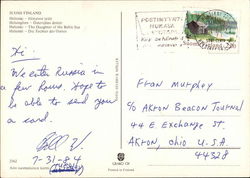 SUOMI FINLAND
Helsinki
Helsinki - The Daughter of the Baltic Sea
Helsinki - Die Tochter der Ostsee
POSTINUMERO
MUKAAN
Suomi Finland
Hi.
We enter Russia in
a few hours. Hope to
be able to send you
a card.
Bill V.
7-31-84
(Tuesday)
Fran Murphy
c/o AKRON BEACON JOURNAL
44 E. EXCHANGE ST.
AKRON, OHIO U.S.A.
44328
Printed in Finland